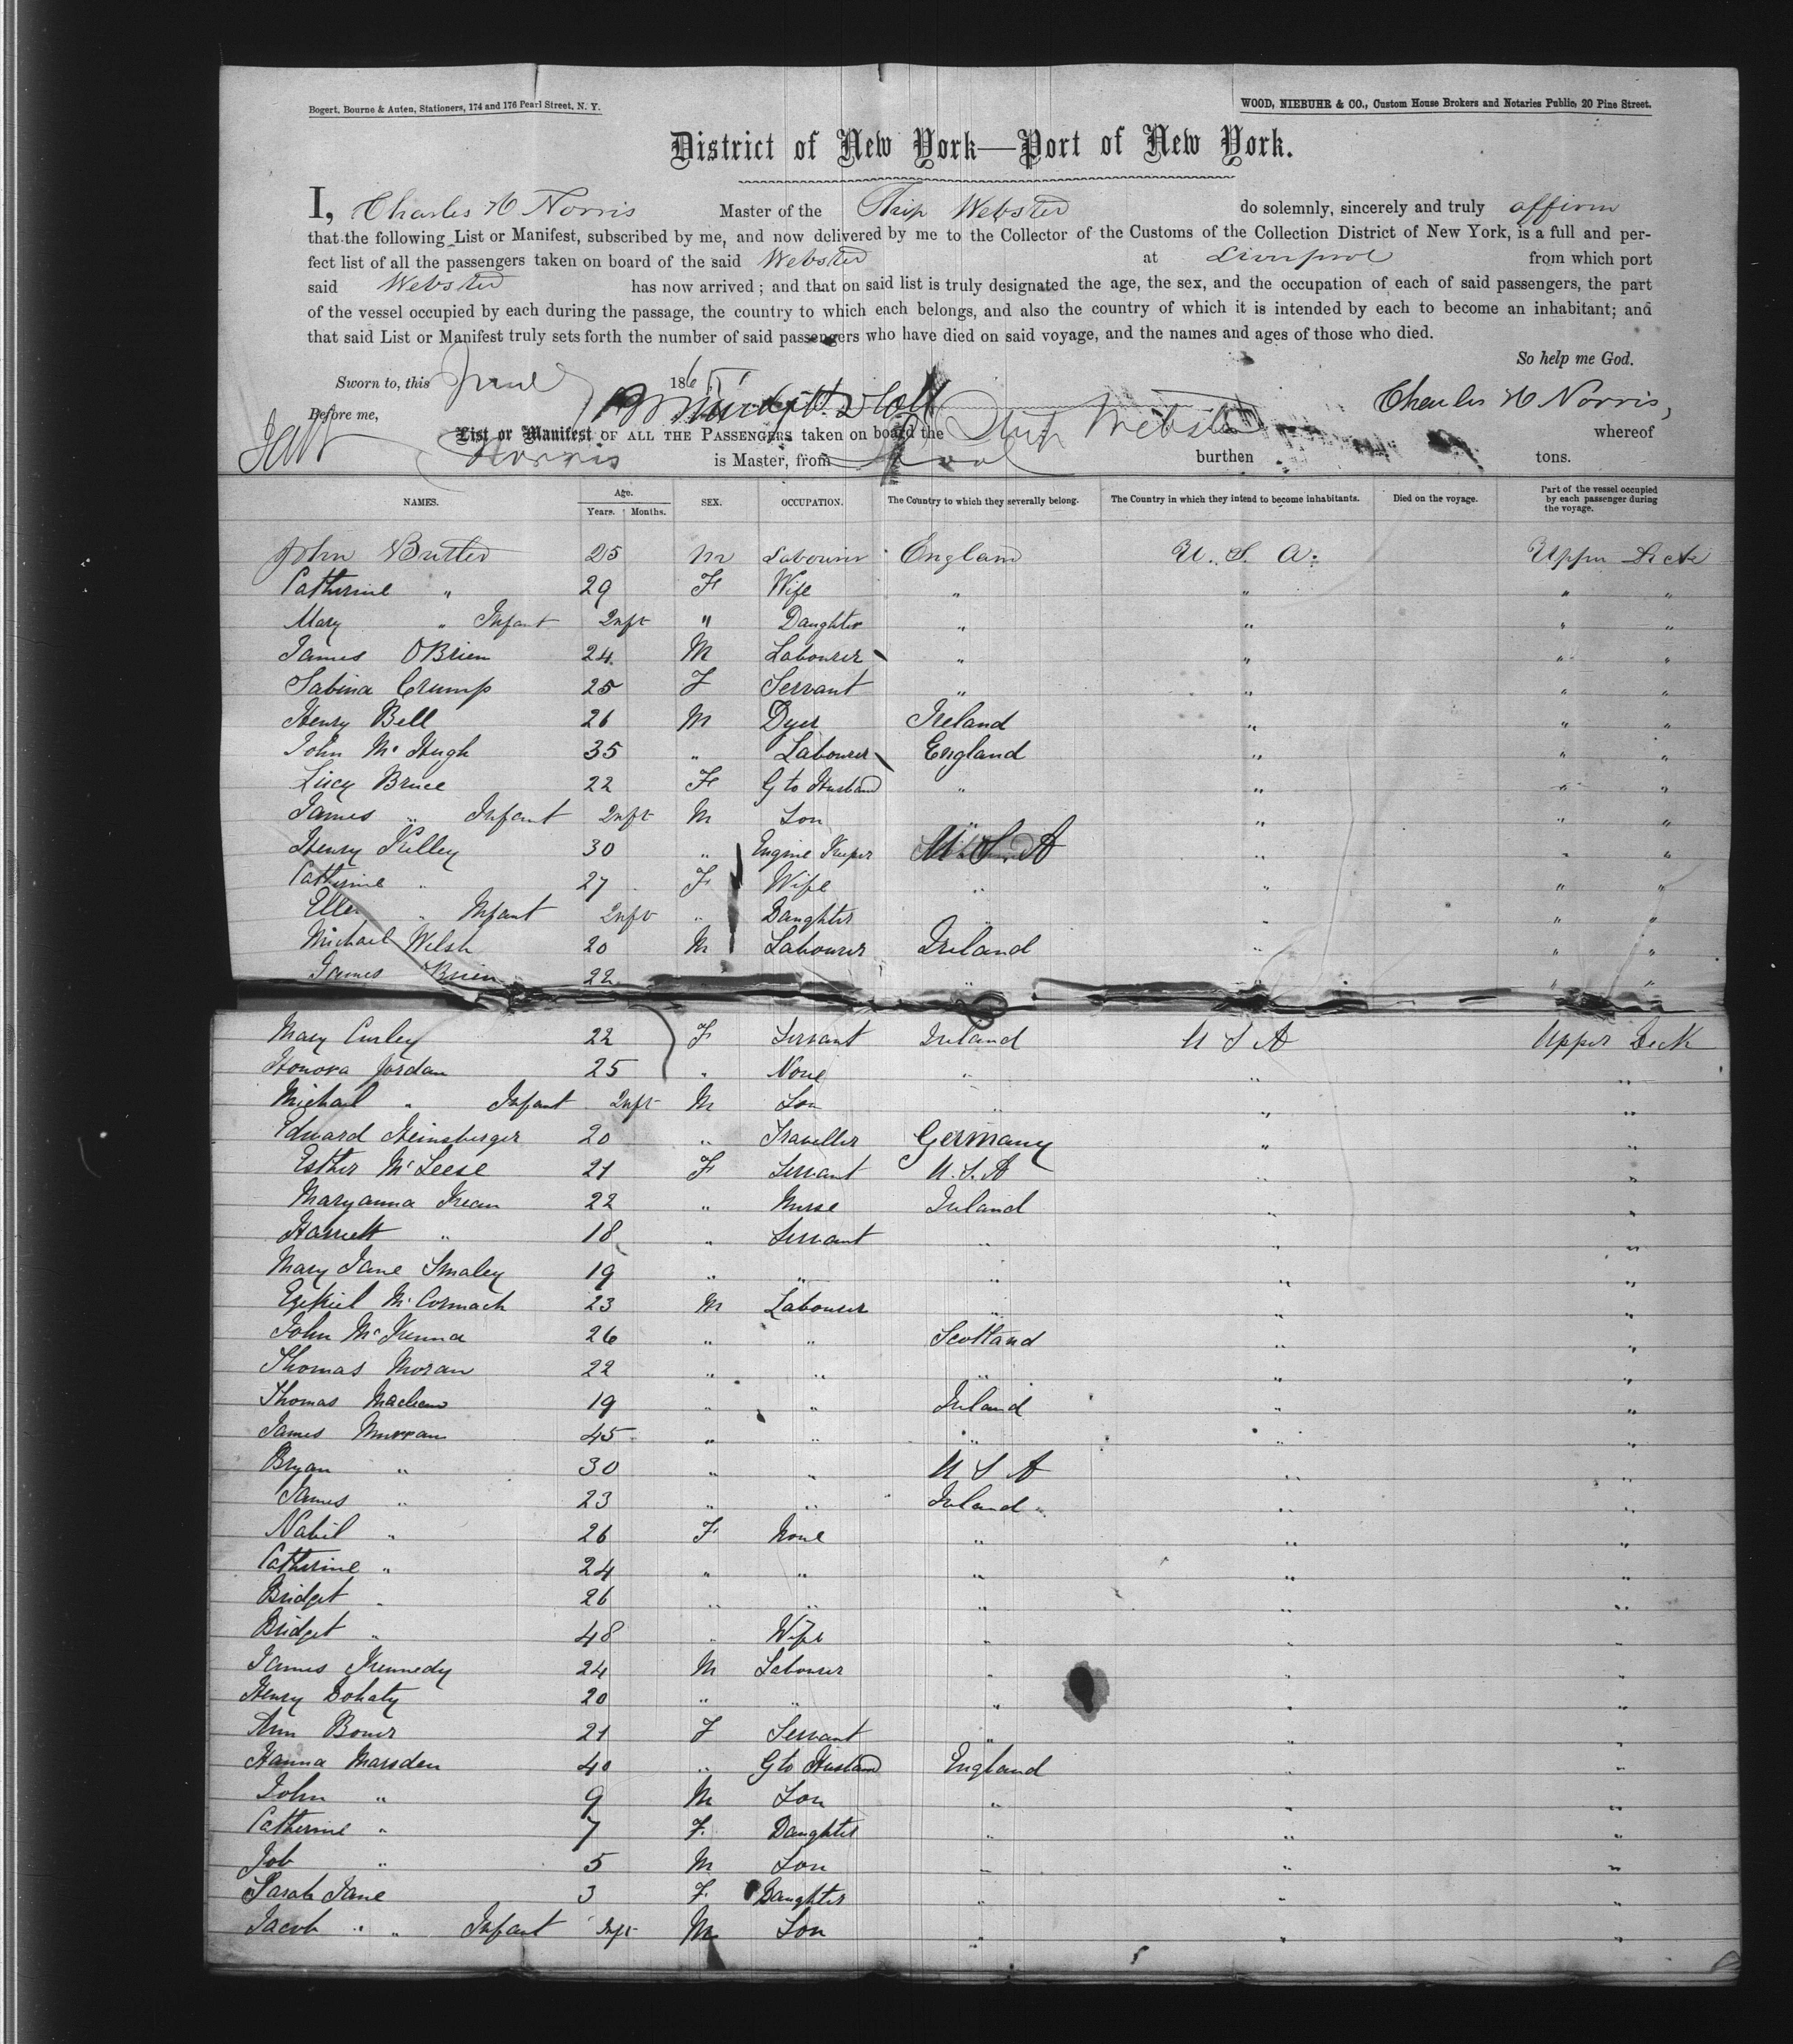 Bogert, Bourne & Auten, Stationers, 174 and 176 Pearl Street, N. Y. WOOD, NIEBUHR & CO., Custom House Brokers and Notaries Public, 20 Pine Street.
District of New York—Port of New York.
I, Charles H Norris Master of the Ship Webster do solemnly, sincerely and truly affirm
that the following List or Manifest, subscribed by me, and now delivered by me to the Collector of the Customs of the Collection District of New York, is a full and per-
fect list of all the passengers taken on board of the said Webster at Liverpool from which port
said Webster has now arrived; and that on said list is truly designated the age, the sex, and the occupation of each of said passengers, the part
of the vessel occupied by each during the passage, the country to which each belongs, and also the country of which it is intended by each to become an inhabitant; and
that said List or Manifest truly sets forth the number of said passengers who have died on said voyage, and the names and ages of those who died.
So help me God.
Sworn to, this June 186
Charles H Norris,
Before me,
List or Manifest OF ALL THE PASSENGERS taken on board the Ship Webster whereof
Norris is Master, from burthen tons.
NAMES. Age. Years. Months. SEX. OCCUPATION. The Country to which they severally belong. The Country in which they intend to become inhabitants. Died on the voyage. Part of the vessel occupied by each passenger during the voyage.
John 25 M Labourer England U. S. A. Upper Deck
Catherine " 29 F Wife " " " "
Mary " Infant Inft " Daughter " " " "
James OBrien 24 M Labourer " " " "
Sabina Crump 25 F Servant " " " "
Henry Bell 26 M Dyer Ireland " " "
John McHugh 35 " Labourer England " " "
Lucy Bruce 22 F G to Husband " " " "
James " Infant Inft M Son " " " "
Henry Kelley 30 " Engine Keeper U S A " " "
Catherine " 27 F Wife " " " "
Ellen " Infant Inft " Daughter " " " "
Michael Welsh 20 M Labourer Ireland " " "
James Brien 22 " " "
Mary Curley 22 F Servant Ireland U S A Upper Deck
Honora Jordan 25 " None " " "
Michael " Infant Inft M Son " " "
Edward Heinsberger 20 " Traveller Germany " "
Esther McLeese 21 F Servant U. S. A " "
Maryanna Kean 22 " Nurse Ireland " "
Harriett " 18 " Servant " " "
Mary Jane Smaley 19 " " " " "
Ezekiel McCormack 23 M Labourer " " "
John McKenna 26 " " Scotland " "
Thomas Moran 22 " " " " "
Thomas 19 " " Ireland " "
James Murran 45 " " " " "
Bryan " 30 " " U S A " "
James " 23 " " Ireland " "
26 F None " " "
Catherine " 24 " " " " "
Bridget " 26 " " " " "
Bridget " 48 " Wife " " "
James Kennedy 24 M Labourer " " "
Henry Dohaty 20 " " " " "
Ann 21 F Servant " " "
Hanna Marsden 40 " G to Husband England " "
John " 9 M Son " " "
Catherine " 7 F. Daughter " " "
Job " 5 M Son " " "
Sarah Jane 3 F. Daughter " " "
Jacob " " Infant Inft M Son " " "